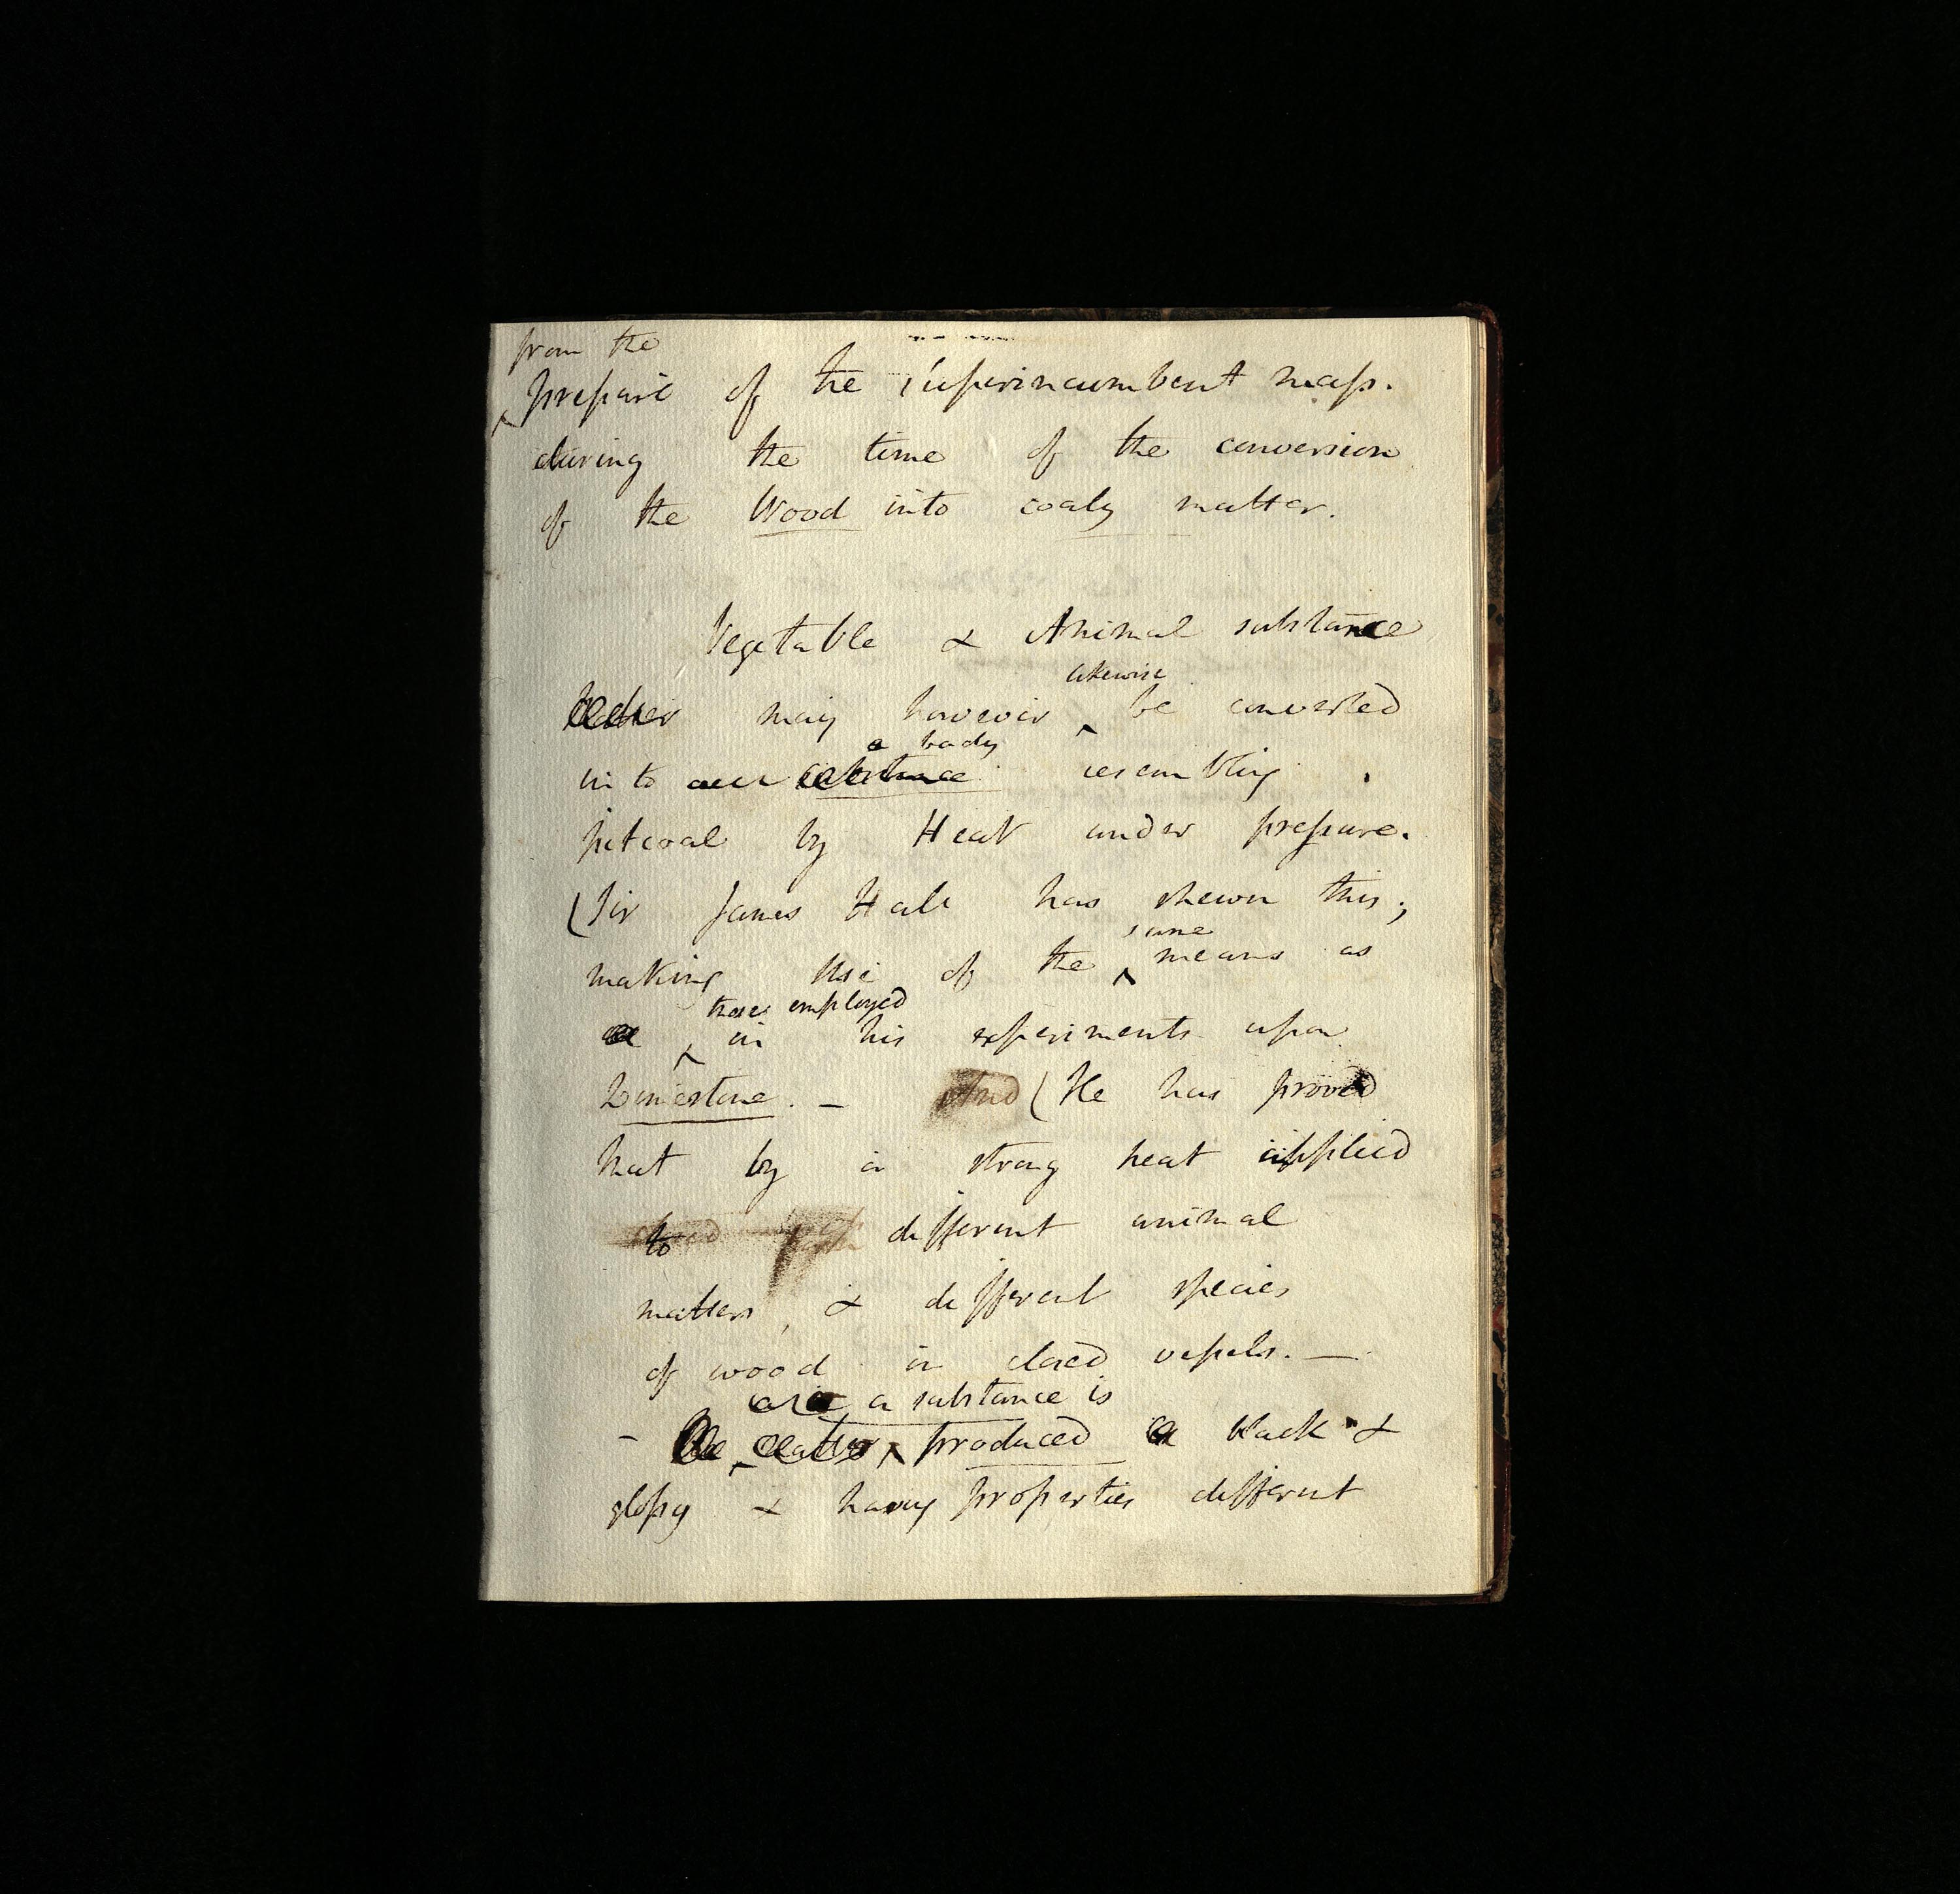 from the
pressure of the superincumbent mass.
during the time of the conversion
of the Wood into coaly matter.
Vegetable & Animal substance
likewise
may however be converted
a body
into resembling
pitcoal by Heat under pressure.
(Sir James Hall has shewn this;
same
making use of the means as
those employed
in his experiments upon
Limestone. – And (He has proved
that by a strong heat applied
to different animal
matters, & different species
of wood in closed vessels. —
a substance is
– produced black &
glossy & having properties different